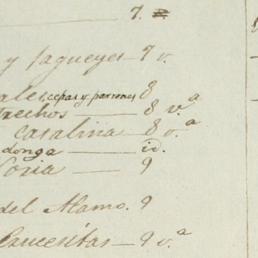 7.
y Jagueyes - 7 v.
ales, cepas y parrones 8
trechos — 8 v.ª
Catalina — 8 v.ª
donga — id.
Noria — 9
del Alamo. 9
Saucesitas — 9 v.ª